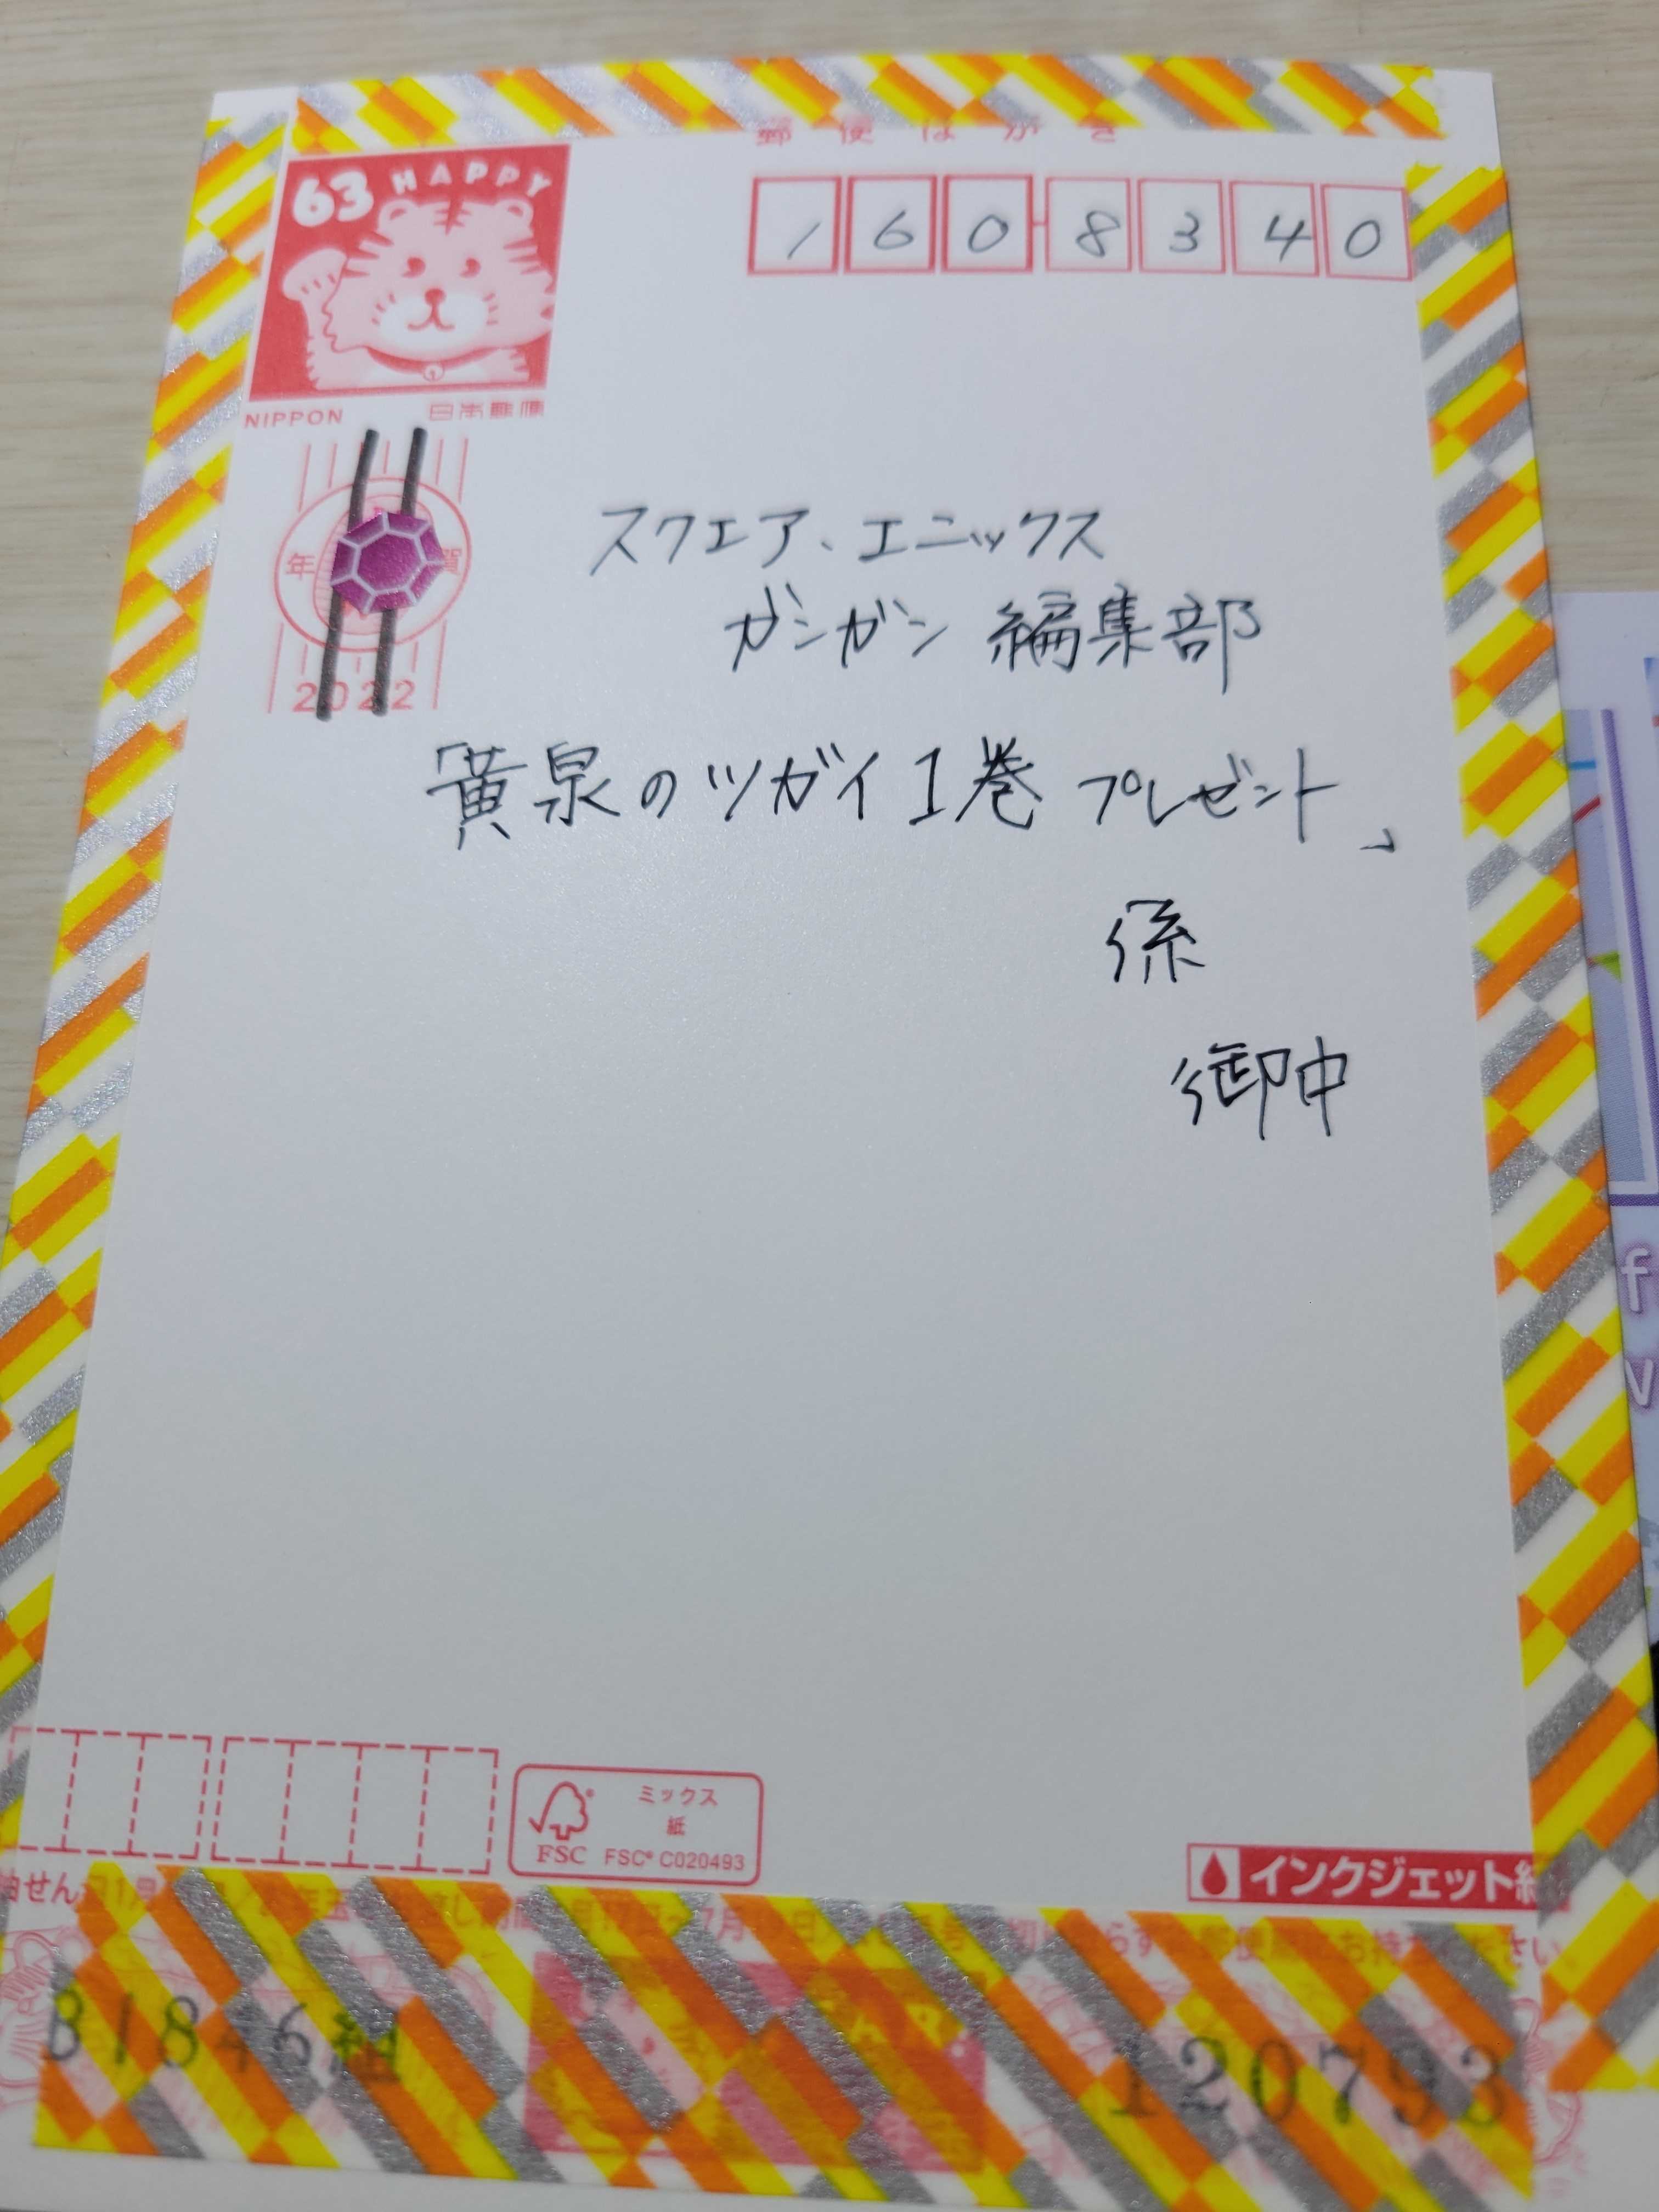 郵便はがき
63 HAPPY
160-8340
NIPPON 日本郵便
年 賀
2022
スクエア、エニックス
ガンガン 編集部
「黄泉のツガイ1巻 プレゼント」
係
御中
ミックス
紙
FSC FSC® C020493
インクジェット紙
B1846組 120793